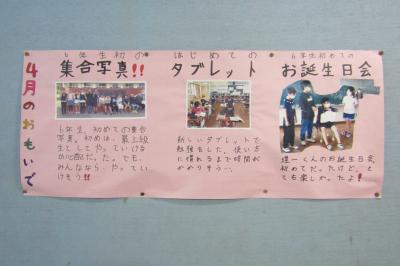 4月のおもいで
6年生初の
集合写真!!
6年生、初めての集合
写真。初めは、最上級
生としてやっていける
か心配だ。った。でも、
みんななら、やってい
けそう!!
はじめての
タブレット
新しいタブレットで
勉強をした。使い方
に慣れるまで時間が
かかりそう…。
6年生初めての
お誕生日会
くんのお誕生日会。
初めてだったけど、と
ても楽しかったよ!